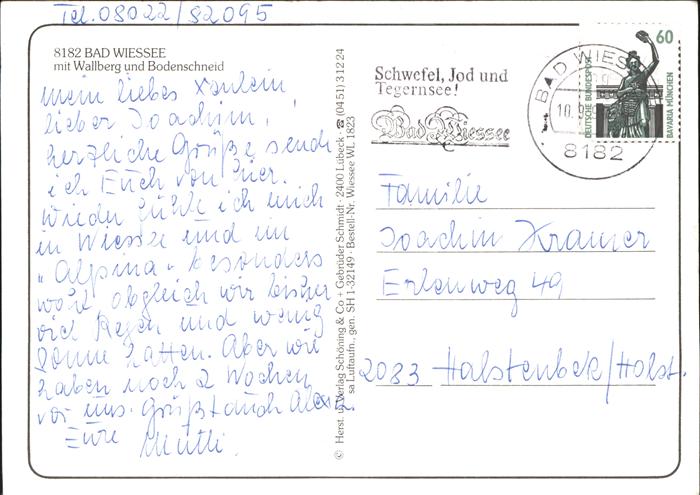 Tel. 08022/82095
8182 BAD WIESSEE
mit Wallberg und Bodenschneid
mein liebes
lieber Joachim!
herzliche Grüße sende
ich Euch von hier.
wieder fühle ich mich
in Wiessee und im
"Alpina" besonders
wohl obgleich wir bisher
viel Regen und wenig
Sonne hatten. Aber wir
haben noch 2 Wochen
vor uns. Grüßt auch
Eure Mutti.
© Herst. u. Verlag Schöning & Co + Gebrüder Schmidt · 2400 Lübeck · ☎ (0451) 31224
sa Luftaufn., gen. SH 1-32149 · Bestell-Nr. Wiessee WL 1823
Schwefel, Jod und
Tegernsee!
Bad Wiessee
BAD WIESSEE
8182
60
DEUTSCHE BUNDESPOST
BAVARIA MÜNCHEN
Familie
Joachim Kramer
Erlenweg 49
2083 Halstenbek/Holst.